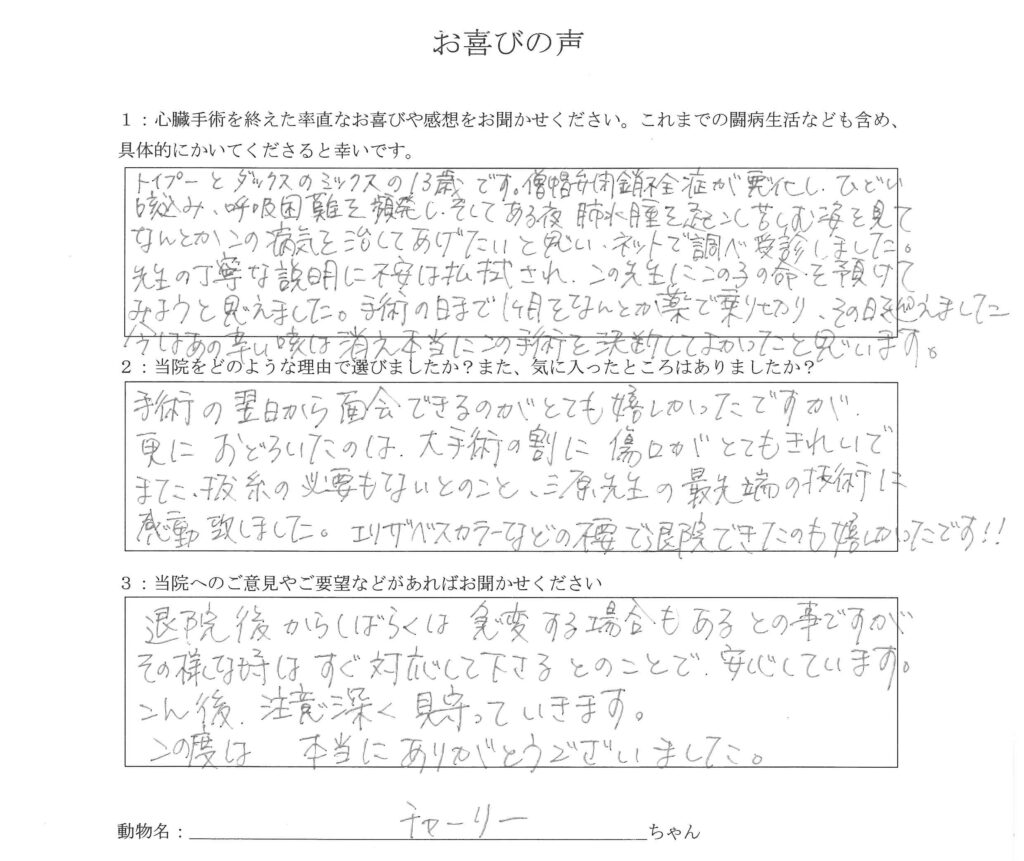 お喜びの声
1：心臓手術を終えた率直なお喜びや感想をお聞かせください。これまでの闘病生活なども含め、
具体的にかいてくださると幸いです。
トイプーとダックスのミックスの13歳です。僧帽弁閉鎖不全症が悪化し、ひどい
咳込み、呼吸困難を頻発し、そしてある夜肺水腫を起こし苦しむ姿を見て
なんとかこの病気を治してあげたいと思い、ネットで調べ受診しました。
先生の丁寧な説明に不安は払拭され、この先生にこの子の命を預けて
みようと思えました。手術の日まで1ケ月をなんとか薬で乗り切り、その日を迎えました
今はあの辛い咳は消え本当にこの手術を決断してよかったと思います。
2：当院をどのような理由で選びましたか？また、気に入ったところはありましたか？
手術の翌日から面会できるのがとても嬉しかったですが、
更におどろいたのは、大手術の割に傷口がとてもきれいで
また、抜糸の必要もないとのこと、三原先生の最先端の技術に
感動致しました。エリザベスカラーなどの不要で退院できたのも嬉しかったです!!
3：当院へのご意見やご要望などがあればお聞かせください
退院後からしばらくは急変する場合もあるとの事ですが
その様な時はすぐ対応して下さるとのことで、安心しています。
こん後、注意深く見守っていきます。
この度は 本当にありがとうございました。
動物名：チャーリーちゃん